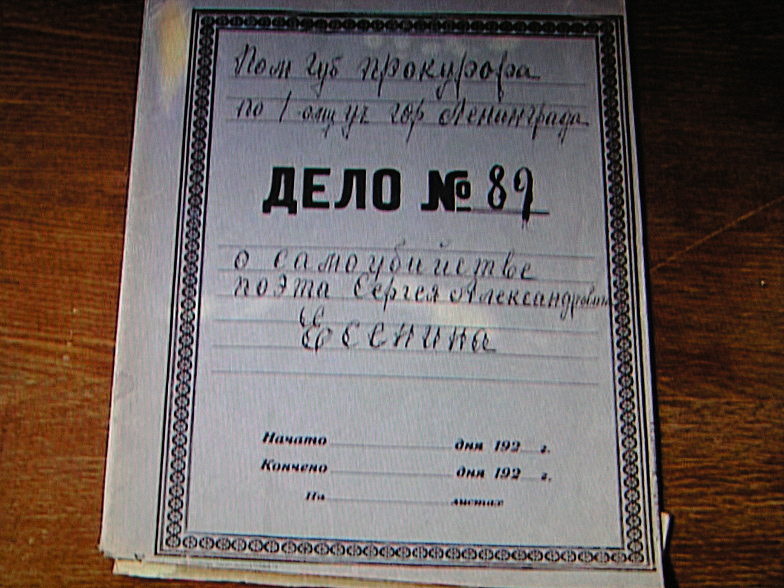 Пом губ прокурора
по 1 ому уч гор Ленинграда
ДЕЛО № 89
о самоубийстве
поэта Сергея Александровича
Есенина
Начато дня 192 г.
Кончено дня 192 г.
На листах